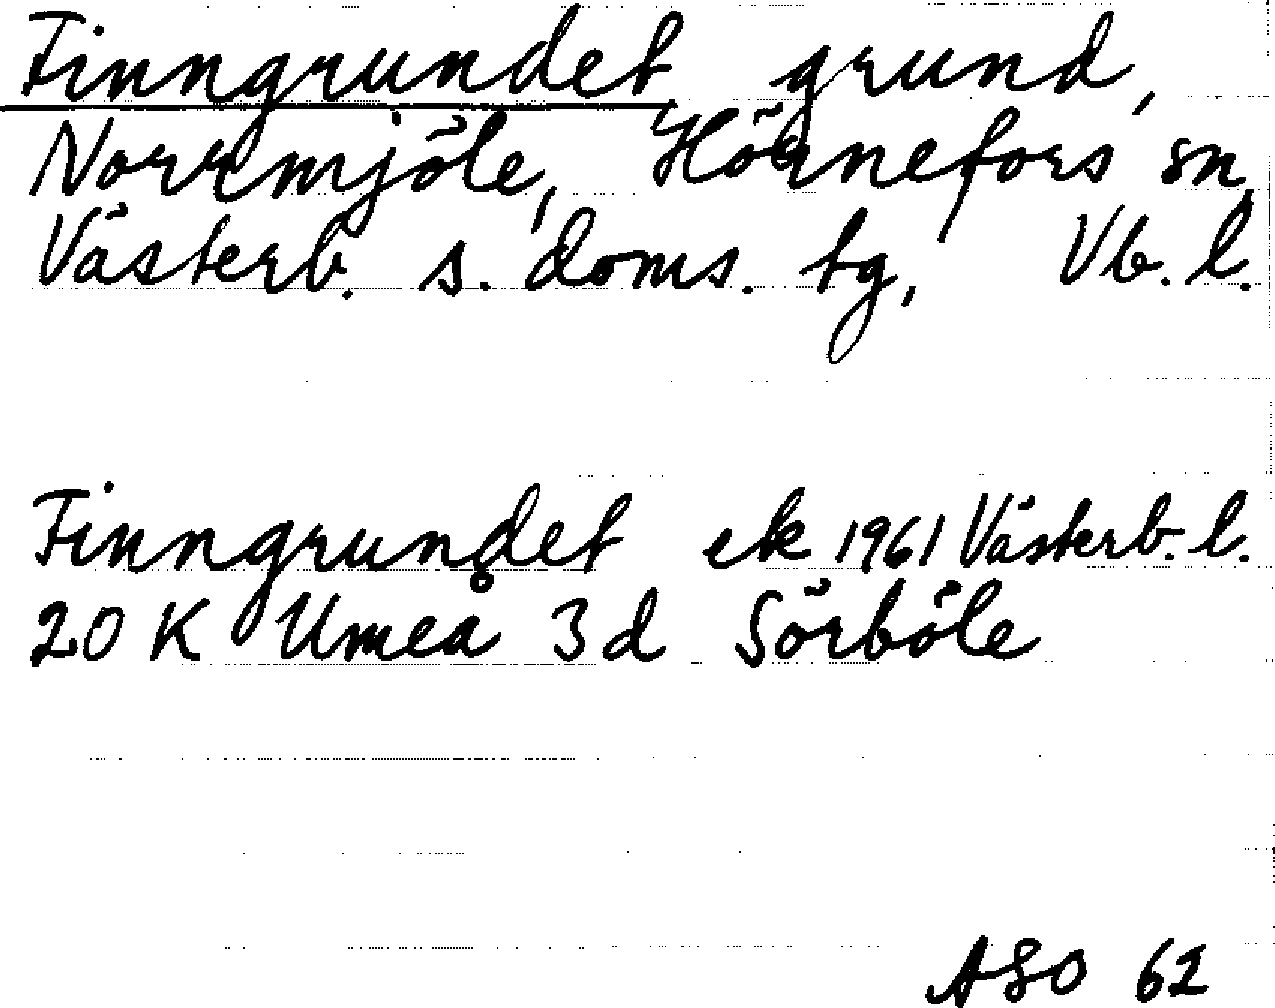 Finngrundet grund,
Norrmjöle, Hörnefors sn,
Västerb. s. doms. tg, Vb. l.
Finngrundet ek 1961 Västerb. l.
20 K Umeå 3d Sörböle
ASO 62